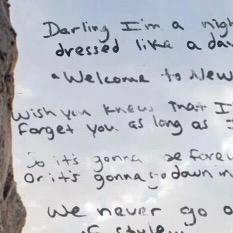 Darling I'm a nigh
dressed like a da
"Welcome to New
Wish you knew that I
forget you as long as I
So it's gonna be forev
Or it's gonna go down in
We never go o
of style...